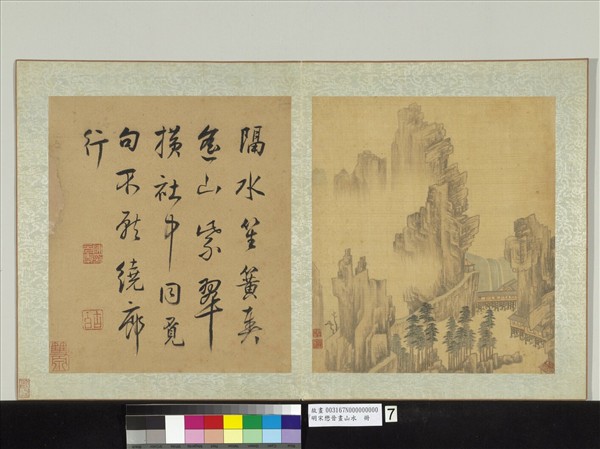 隔水笙簧奏
山紫翠
橫社中同覓
句不厭繞廊
行
故畫 003167N000000000
明宋懋晉畫山水 冊
7